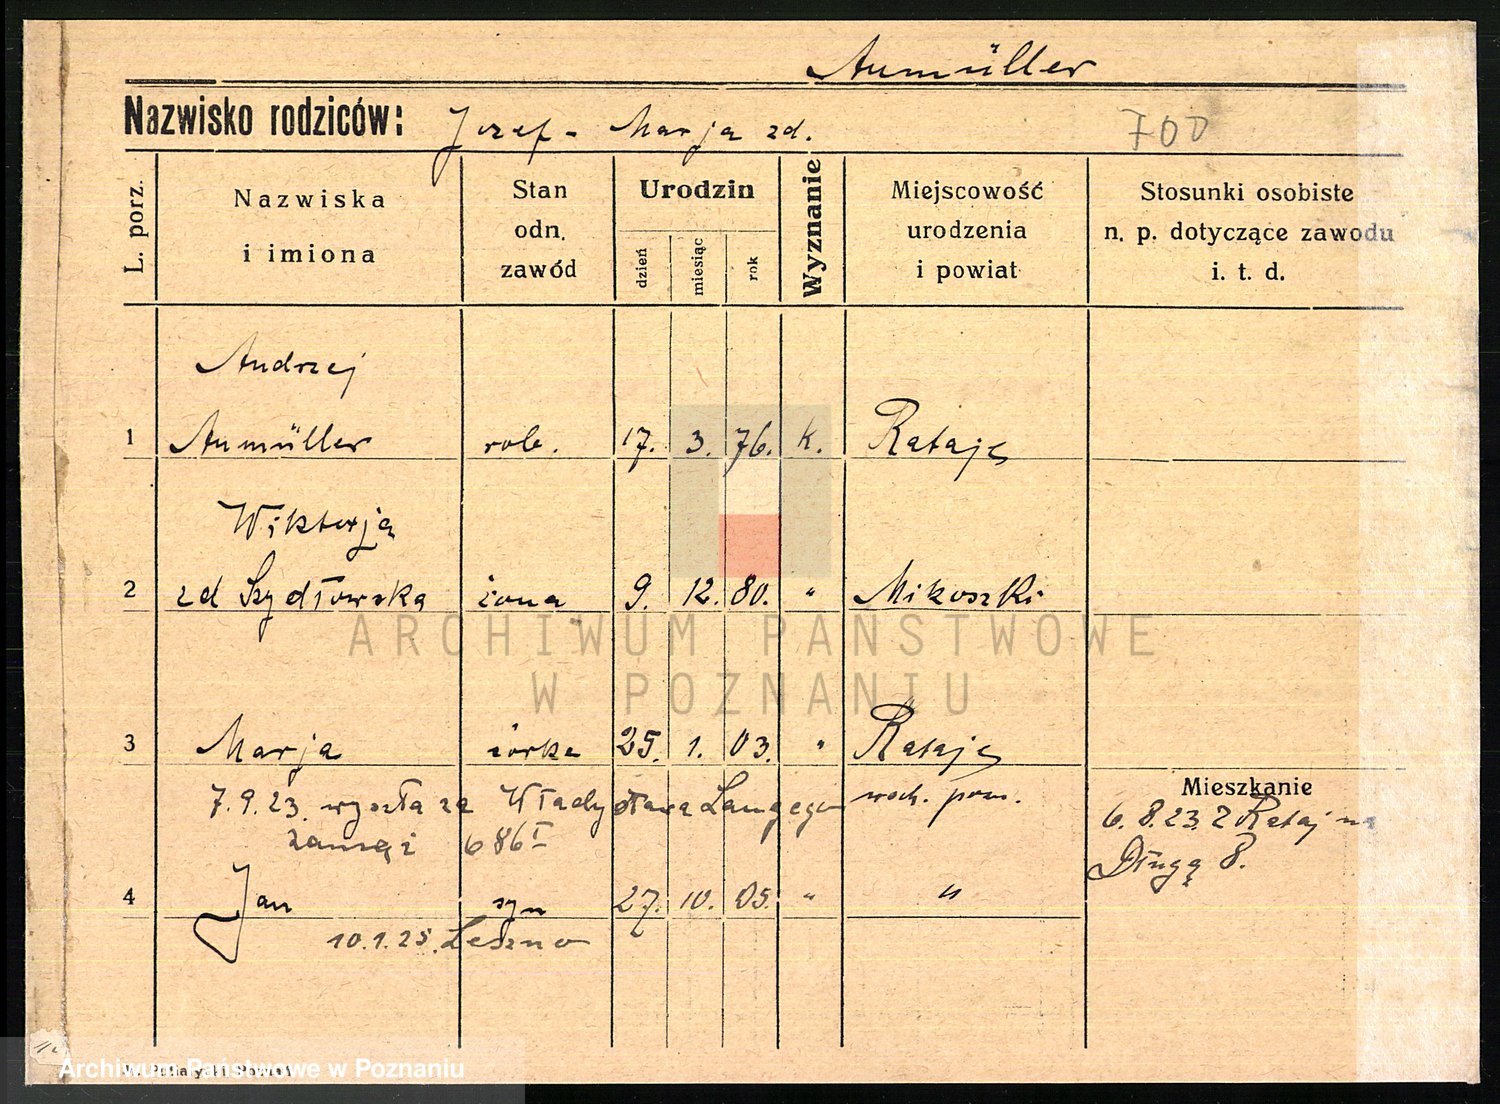 Aumüller
Nazwisko rodziców: Jozef - Marja zd.
700
L. porz.
Nazwiska
i imiona
Stan
odn.
zawód
Urodzin
dzień
miesiąc
rok
Wyznanie
Miejscowość
urodzenia
i powiat
Stosunki osobiste
n. p. dotyczące zawodu
i. t. d.
Andrzej
1 Aumüller rob. 17. 3. 76. k. Rataje
Wiktorją
2 zd Szydłowska żona 9. 12. 80. " Mikoszki
3 Marja córka 25. 1. 03. " Rataje
7.9.23. wyszła za Władysława Langego
6 86 I
Mieszkanie
6.8.23. z Rataj na
Długą 8.
4 Jan syn 27. 10. 05. " "
10.1.25. Leszno
ARCHIWUM PAŃSTWOWE
W POZNANIU
Archiwum Państwowe w Poznaniu